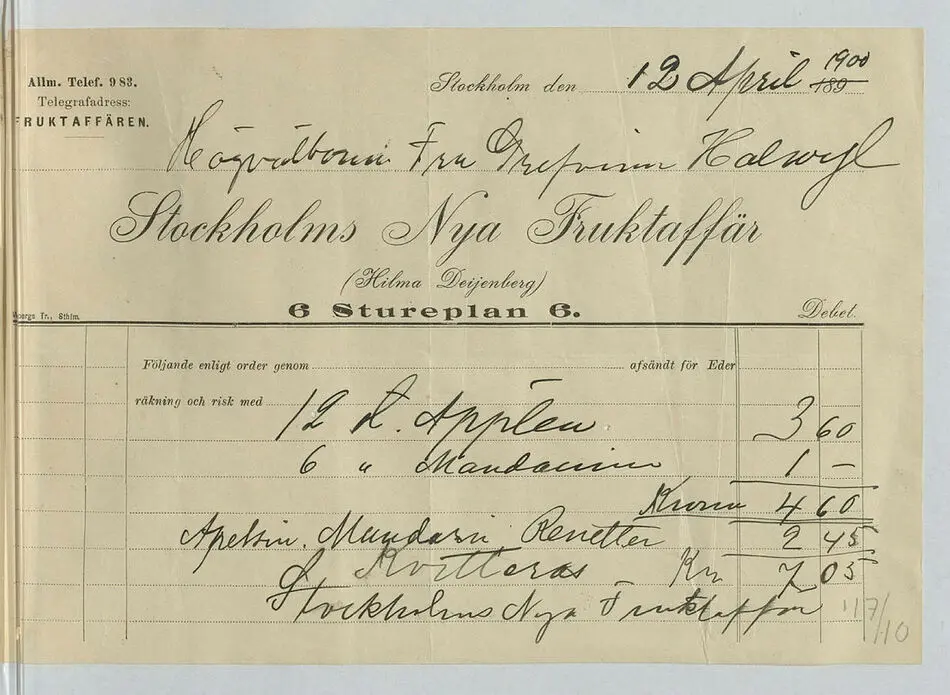 Allm. Telef. 983.
Telegrafadress:
FRUKTAFFÄREN.
Stockholm den 12 April 1900
189
Högvälborna Fru Grefvinna Halwyl
Stockholms Nya Fruktaffär
(Hilma Deijenberg)
6 Stureplan 6.
Tr., Sthlm.
Debet.
Följande enligt order genom afsändt för Eder
räkning och risk med
12 Applen 3 60
6 " Mandariner 1 –
Kronor 4 60
Apelsin, Mandarin Renetter 2 45
Kvitteras – Kr 7 05
Stockholms Nya Fruktaffär
17/10